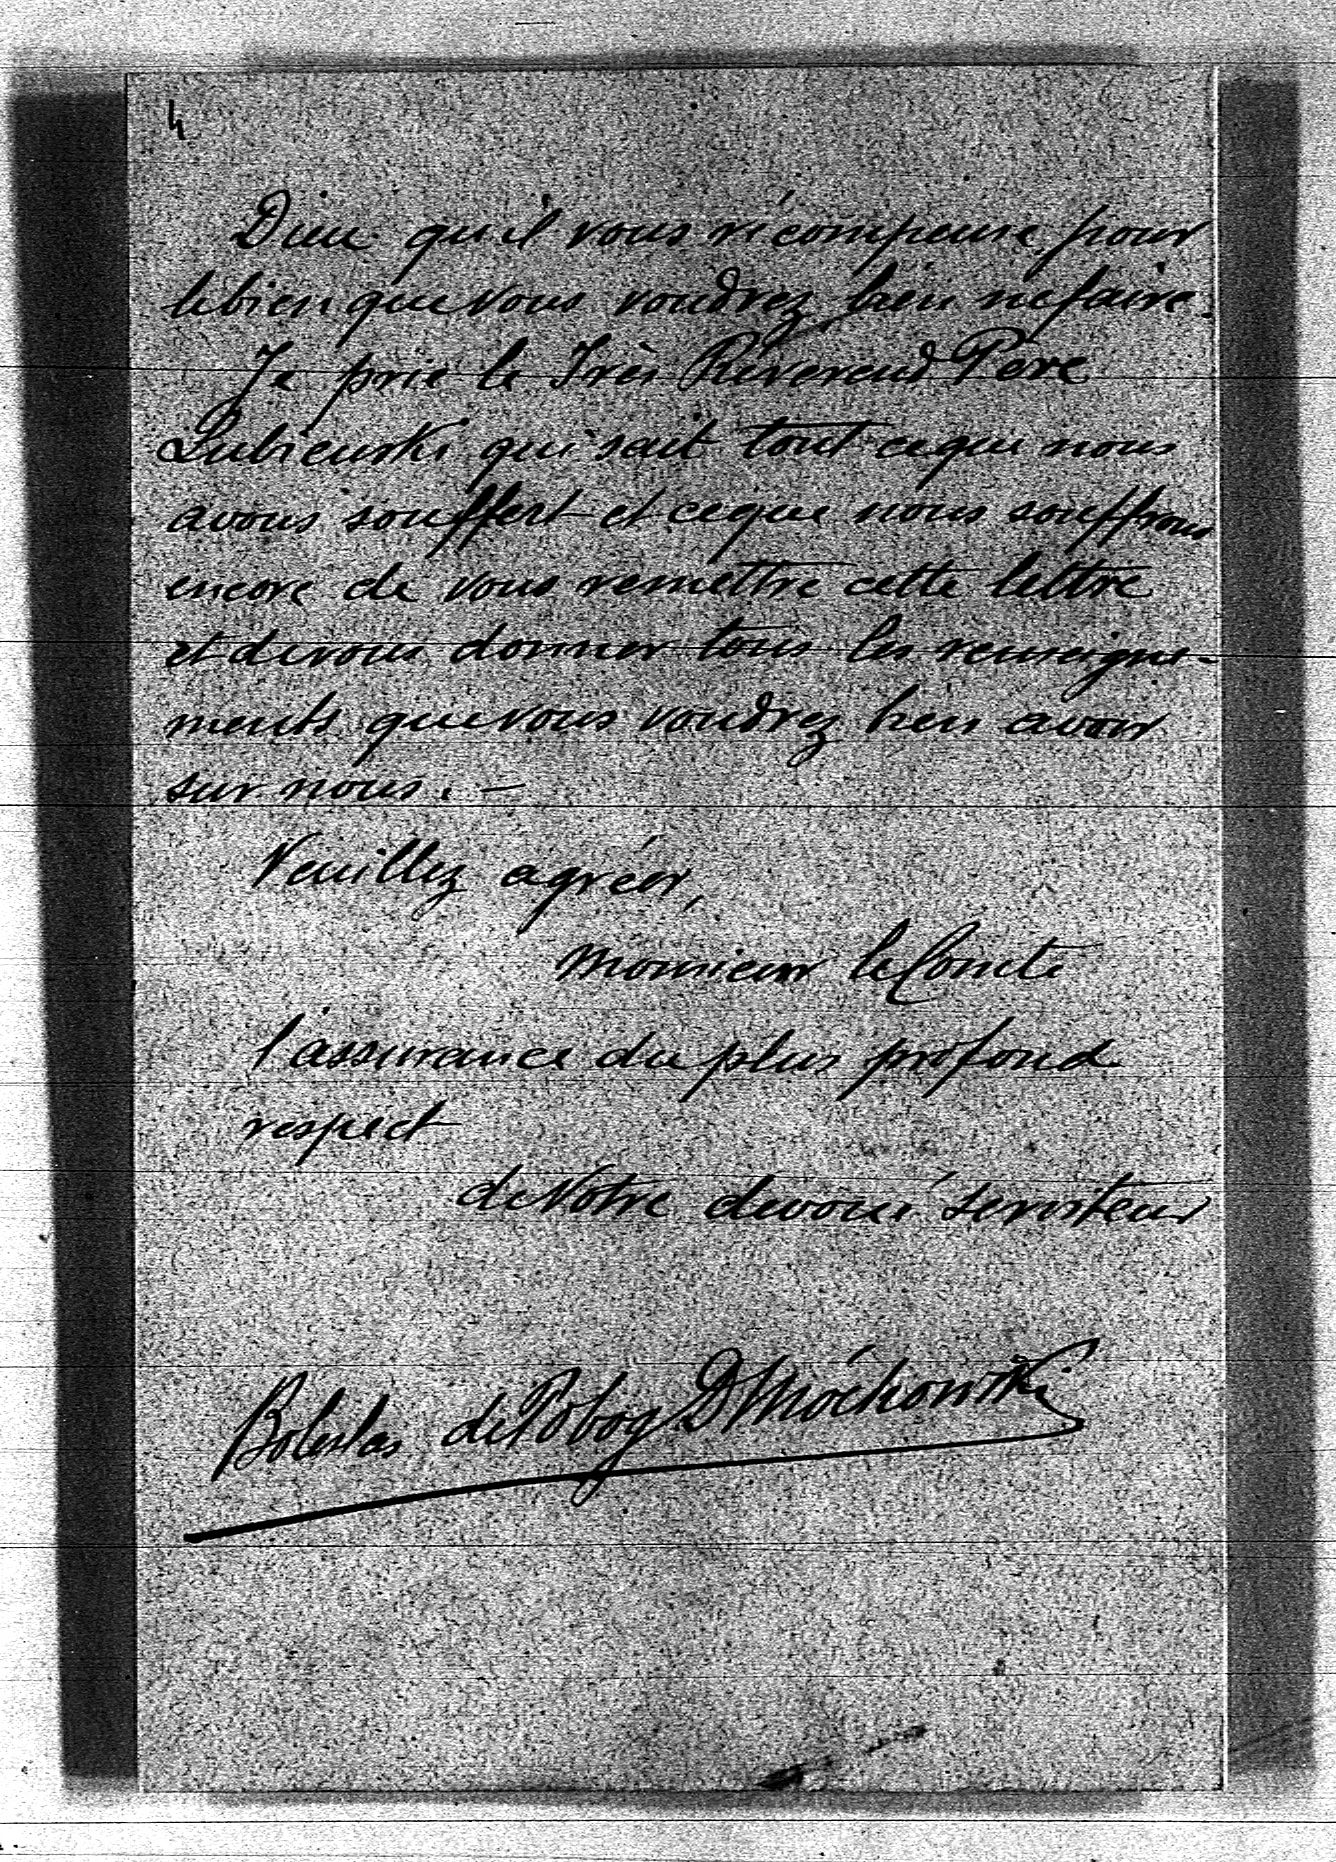 4
Dieu qu'il vous récompense pour
le bien que vous voudrez bien me faire.
Je prie le Très Réverend Pere
Lubienski qui sait tout ce que nous
avons souffert et ce que nous souffrons
encore de vous remettre cette lettre
et de vous donner tous les renseigne-
ments que vous voudrez bien avoir
sur nous. —
Veuillez agréer,
Monsieur le Comte
l'assurance du plus profond
respect
de Votre devoué serviteur
Boleslas de Pobog Dmóchowski